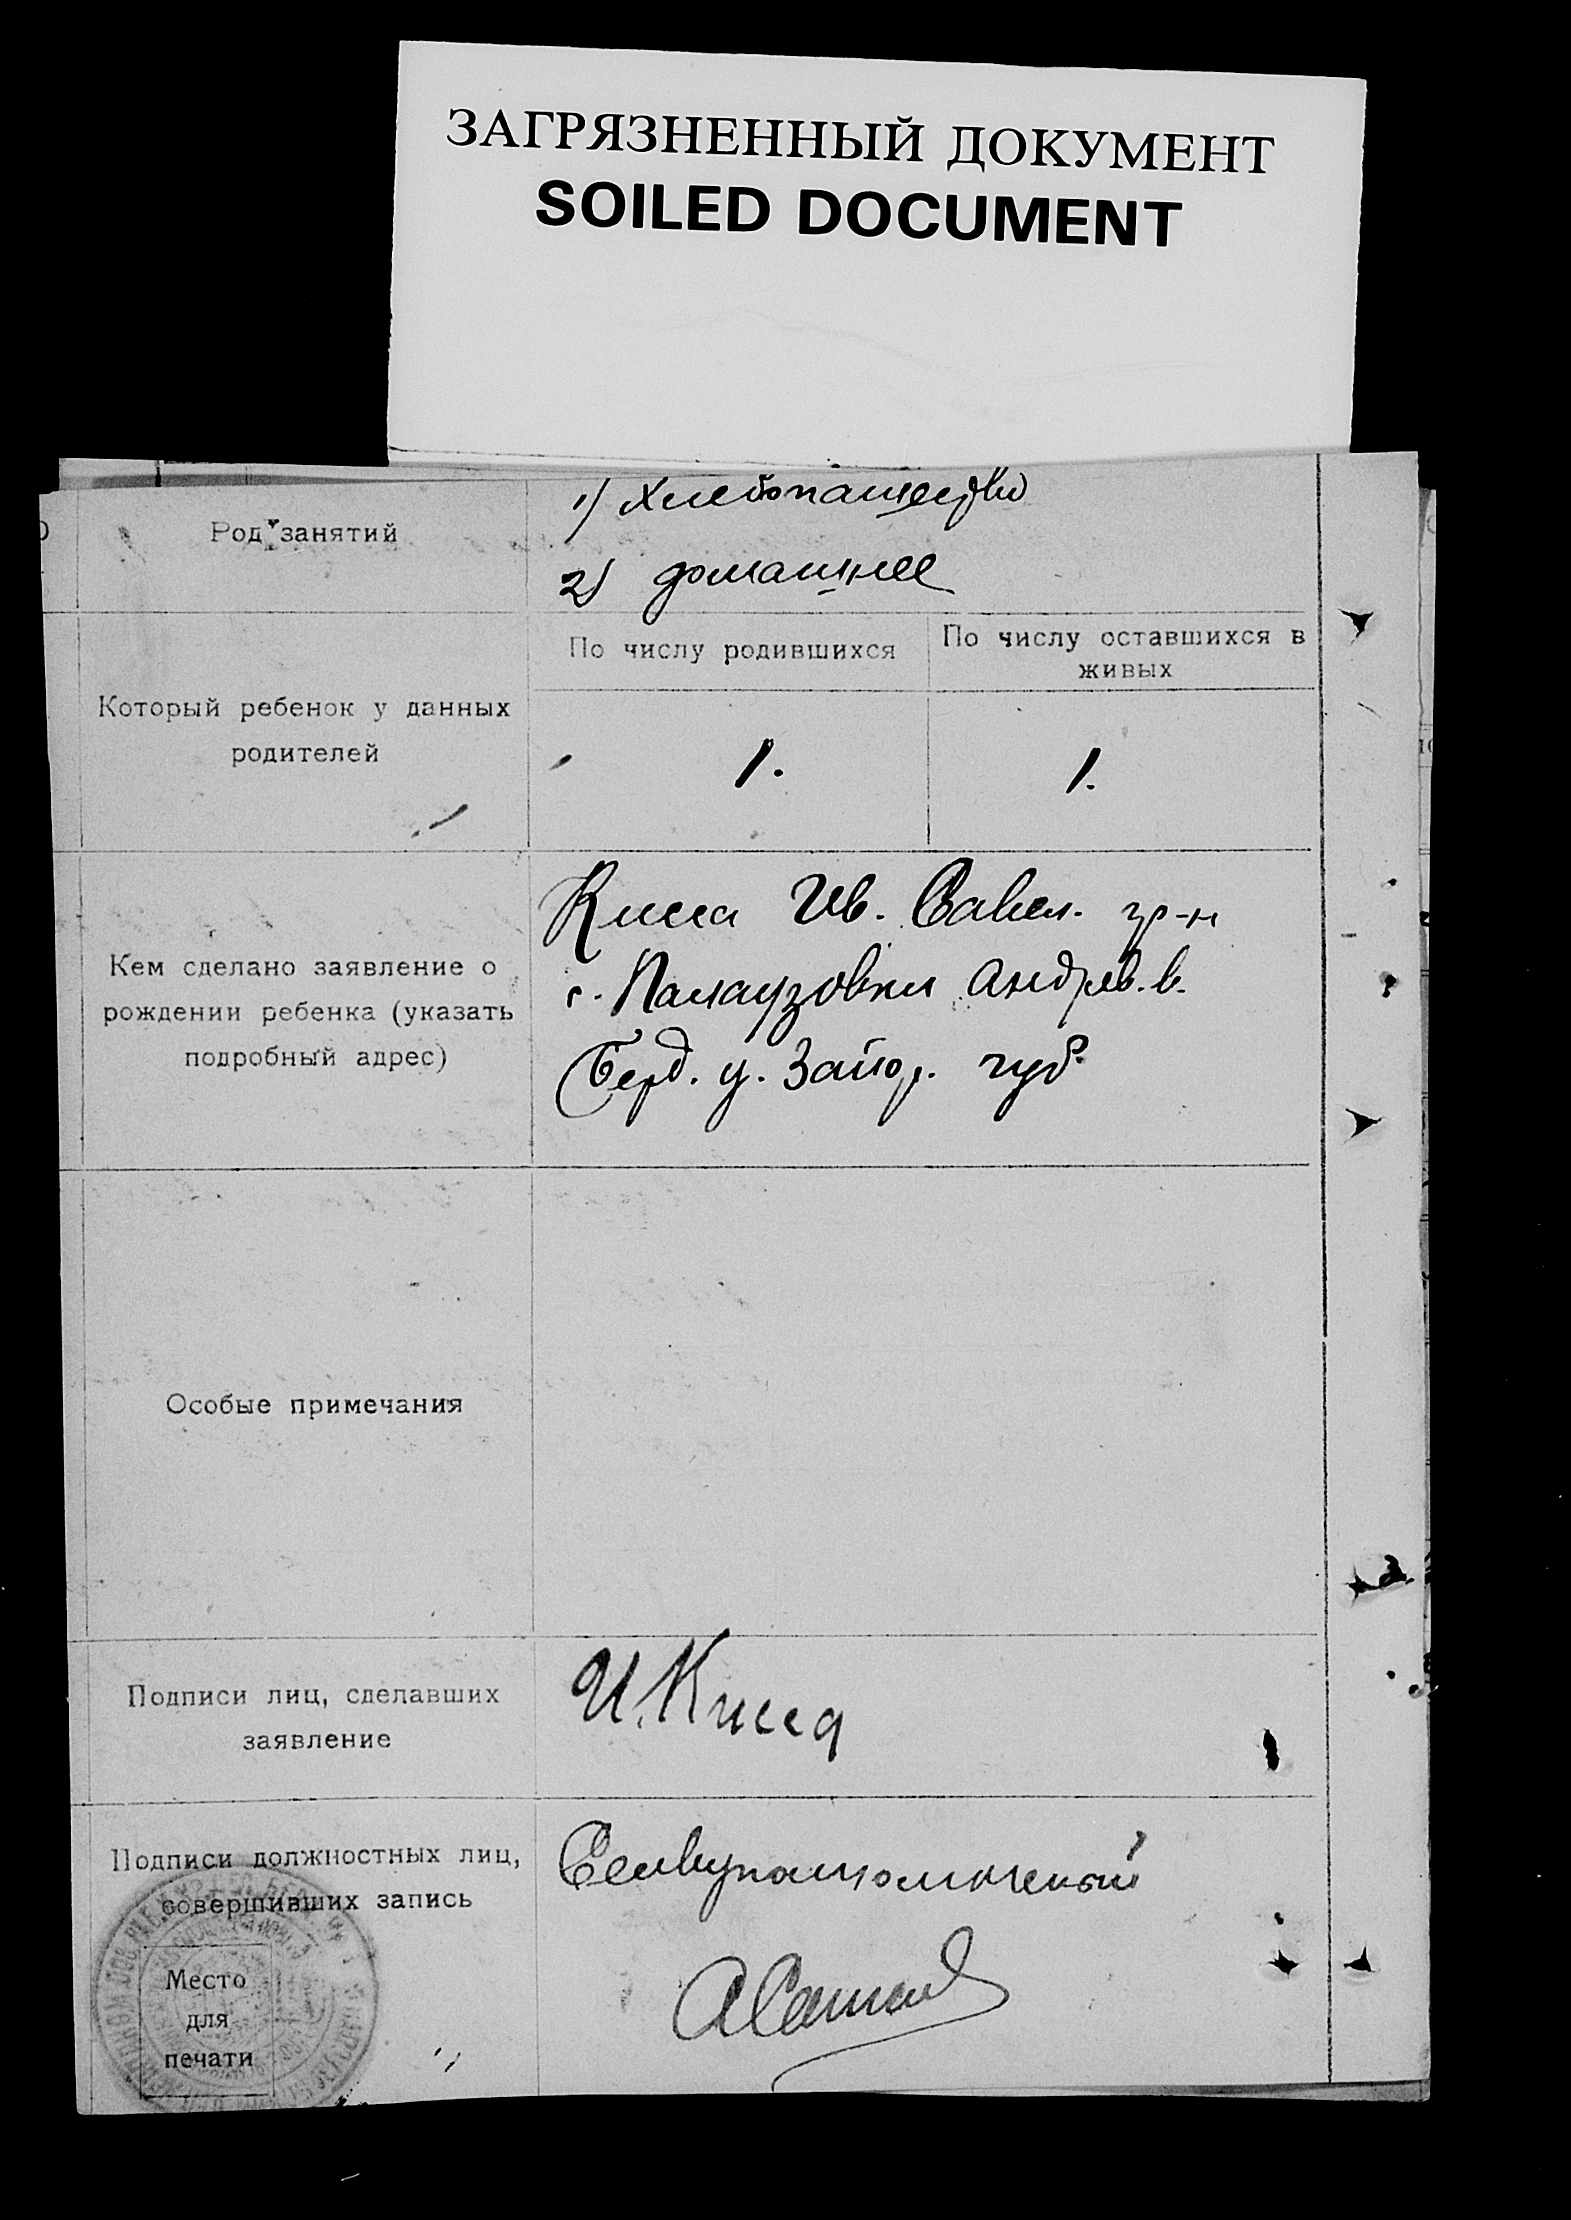 ЗАГРЯЗНЕННЫЙ ДОКУМЕНТ
SOILED DOCUMENT
Род занятий
1) Хлебопашество
2) домашнее
Который ребенок у данных
родителей
По числу родившихся
По числу оставшихся в
живых
1.
1.
Кем сделано заявление о
рождении ребенка (указать
подробный адрес)
Кисса Ив. Савел. гр-н
с. Палаузовки Андрев. в.
Берд. у. Запор. губ.
Особые примечания
Подписи лиц, сделавших
заявление
И. Кисса
Подписи должностных лиц,
совершивших запись
Место
для
печати